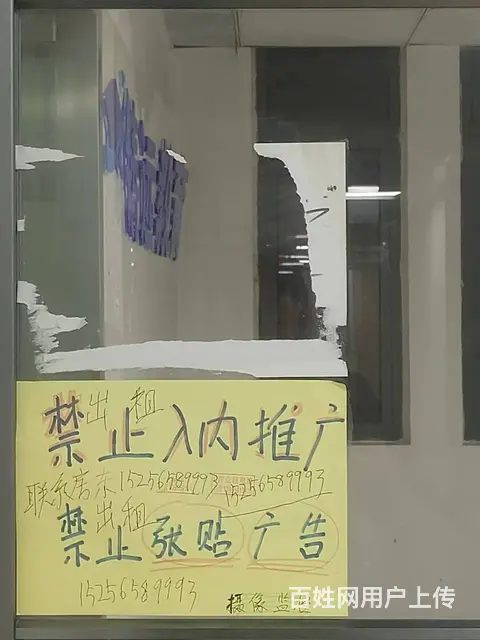 出租
禁止入内推广
联系房东15256589993 15256589993
出租
禁止张贴广告
15256589993
摄像监控
百姓网用户上传